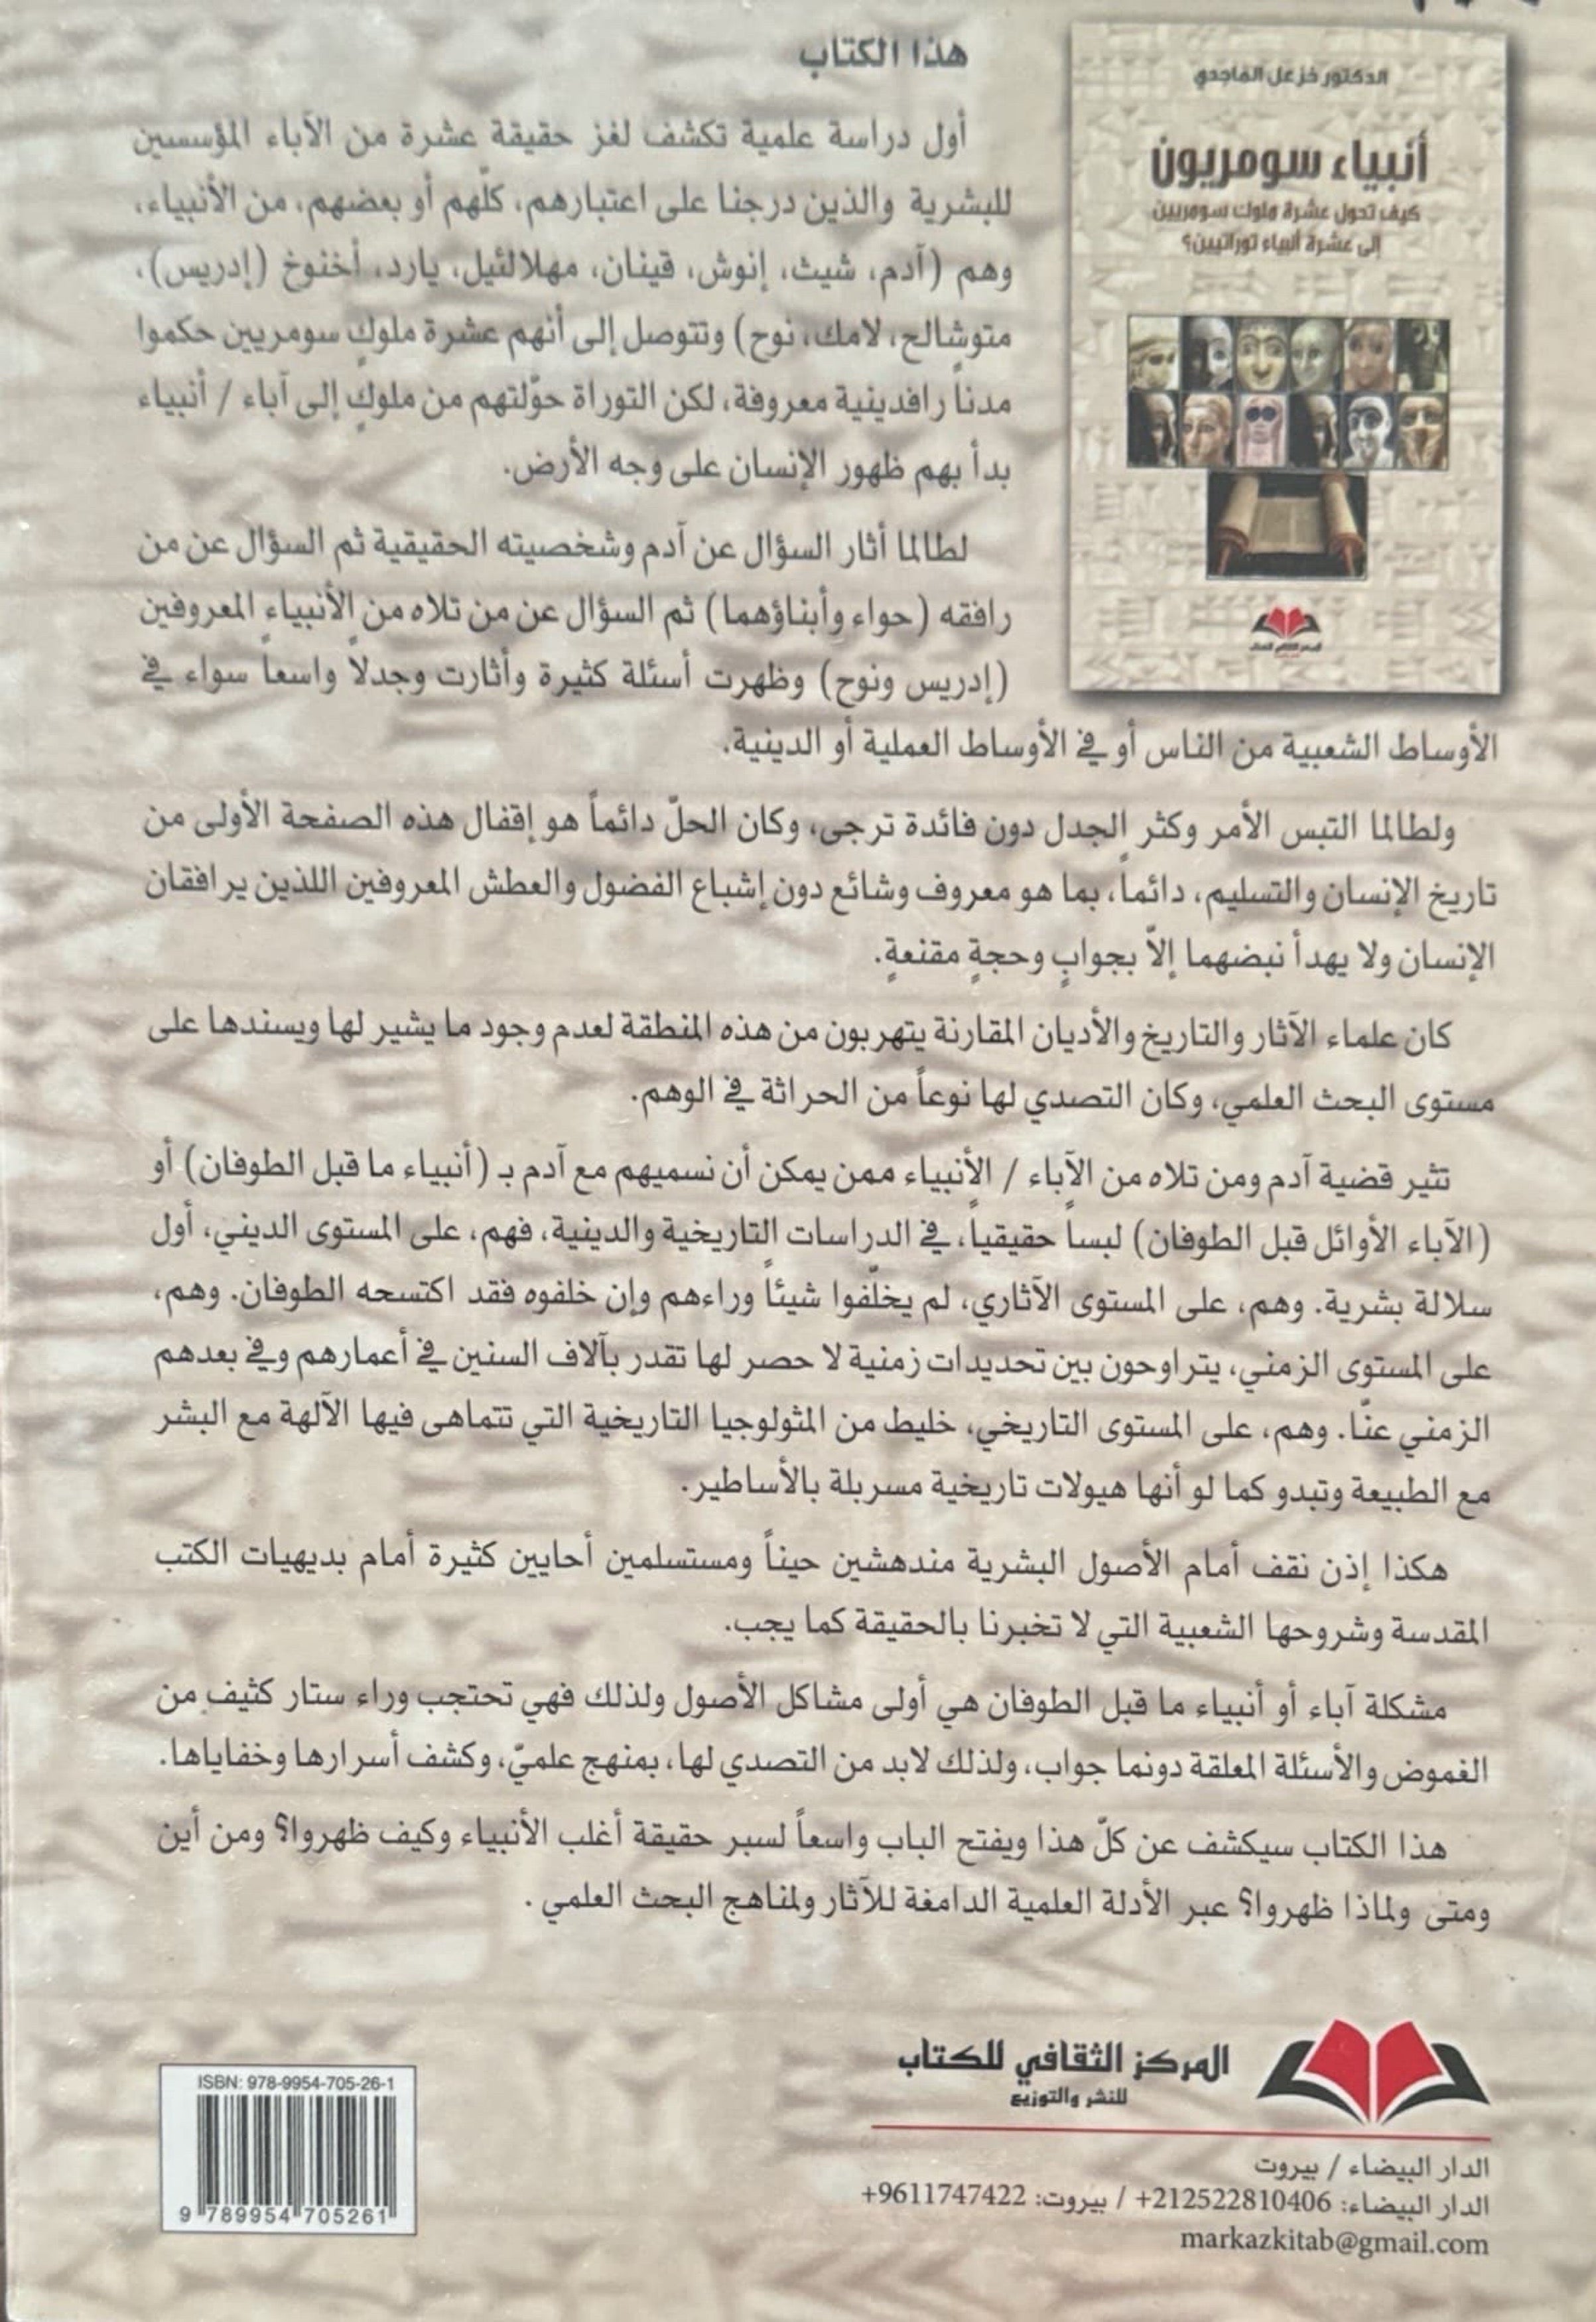 هذا الكتاب
أول دراسة علمية تكشف لغز حقيقة عشرة من الآباء المؤسسين
للبشرية والذين درجنا على اعتبارهم، كلّهم أو بعضهم، من الأنبياء،
وهم (آدم، شيث، إنوش، قينان، مهلالئيل، يارد، أخنوخ (إدريس)،
متوشالح، لامك، نوح) وتتوصل إلى أنهم عشرة ملوكٍ سومريين حكموا
مدناً رافدينية معروفة، لكن التوراة حوّلتهم من ملوكٍ إلى آباء / أنبياء
بدأ بهم ظهور الإنسان على وجه الأرض.
لطالما أثار السؤال عن آدم وشخصيته الحقيقية ثم السؤال عن من
رافقه (حواء وأبناؤهما) ثم السؤال عن من تلاه من الأنبياء المعروفين
(إدريس ونوح) وظهرت أسئلة كثيرة وأثارت وجدلاً واسعاً سواء في
الأوساط الشعبية من الناس أو في الأوساط العملية أو الدينية.
ولطالما التبس الأمر وكثر الجدل دون فائدة ترجى، وكان الحلّ دائماً هو إقفال هذه الصفحة الأولى من
تاريخ الإنسان والتسليم، دائماً، بما هو معروف وشائع دون إشباع الفضول والعطش المعروفين اللذين يرافقان
الإنسان ولا يهدأ نبضهما إلاّ بجوابٍ وحجةٍ مقنعةٍ.
كان علماء الآثار والتاريخ والأديان المقارنة يتهربون من هذه المنطقة لعدم وجود ما يشير لها ويسندها على
مستوى البحث العلمي، وكان التصدي لها نوعاً من الحراثة في الوهم.
تثير قضية آدم ومن تلاه من الآباء / الأنبياء ممن يمكن أن نسميهم مع آدم بـ (أنبياء ما قبل الطوفان) أو
(الآباء الأوائل قبل الطوفان) لبساً حقيقياً، في الدراسات التاريخية والدينية، فهم، على المستوى الديني، أول
سلالة بشرية. وهم، على المستوى الآثاري، لم يخلّفوا شيئاً وراءهم وإن خلفوه فقد اكتسحه الطوفان. وهم،
على المستوى الزمني، يتراوحون بين تحديدات زمنية لا حصر لها تقدر بآلاف السنين في أعمارهم وفي بعدهم
الزمني عنّا. وهم، على المستوى التاريخي، خليط من المثولوجيا التاريخية التي تتماهى فيها الآلهة مع البشر
مع الطبيعة وتبدو كما لو أنها هيولات تاريخية مسربلة بالأساطير.
هكذا إذن نقف أمام الأصول البشرية مندهشين حيناً ومستسلمين أحايين كثيرة أمام بديهيات الكتب
المقدسة وشروحها الشعبية التي لا تخبرنا بالحقيقة كما يجب.
مشكلة آباء أو أنبياء ما قبل الطوفان هي أولى مشاكل الأصول ولذلك فهي تحتجب وراء ستار كثيف من
الغموض والأسئلة المعلقة دونما جواب، ولذلك لابد من التصدي لها، بمنهج علميّ، وكشف أسرارها وخفاياها.
هذا الكتاب سيكشف عن كلّ هذا ويفتح الباب واسعاً لسبر حقيقة أغلب الأنبياء وكيف ظهروا؟ ومن أين
ومتى ولماذا ظهروا؟ عبر الأدلة العلمية الدامغة للآثار ولمناهج البحث العلمي .
الدكتور خزعل الماجدي
أنبياء سومريون
كيف تحول عشرة ملوك سومريين
إلى عشرة أنبياء توراتيين؟
المركز الثقافي للكتاب
للنشر والتوزيع
الدار البيضاء / بيروت
الدار البيضاء: 212522810406+ / بيروت: 9611747422+
markazkitab@gmail.com
ISBN: 978-9954-705-26-1
9 789954 705261